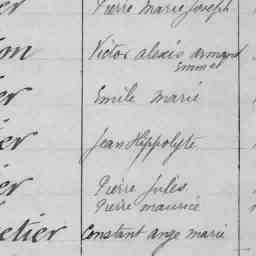 er Pierre Marie Joseph
on Victor alexis armand
Emmel
er Emile marie
ier Jean Hippolyte
ier Pierre Jules
er Pierre maurice
etier Constant ange marie